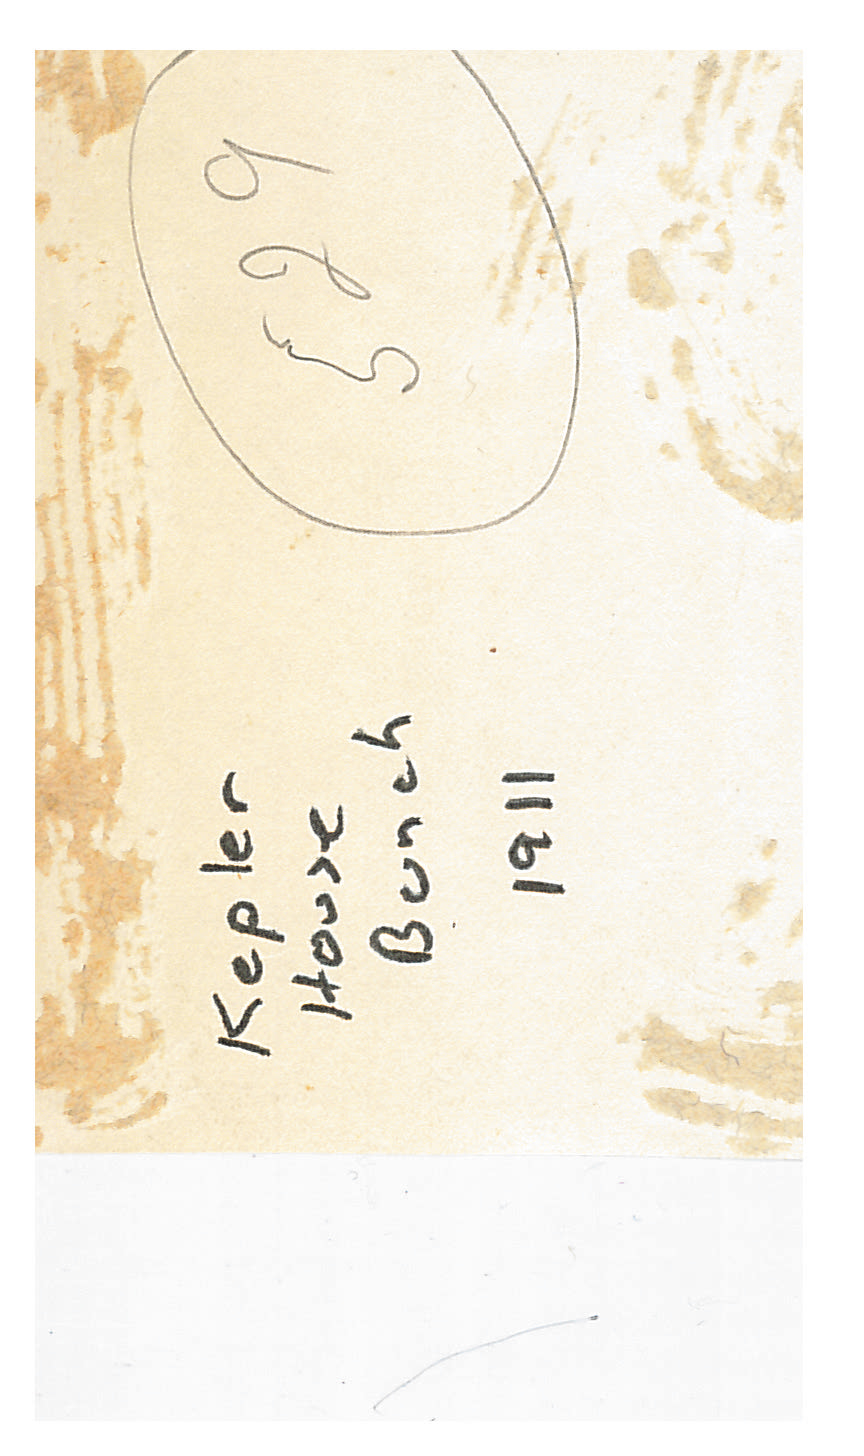 Kepler
House
Bunch
1911
529